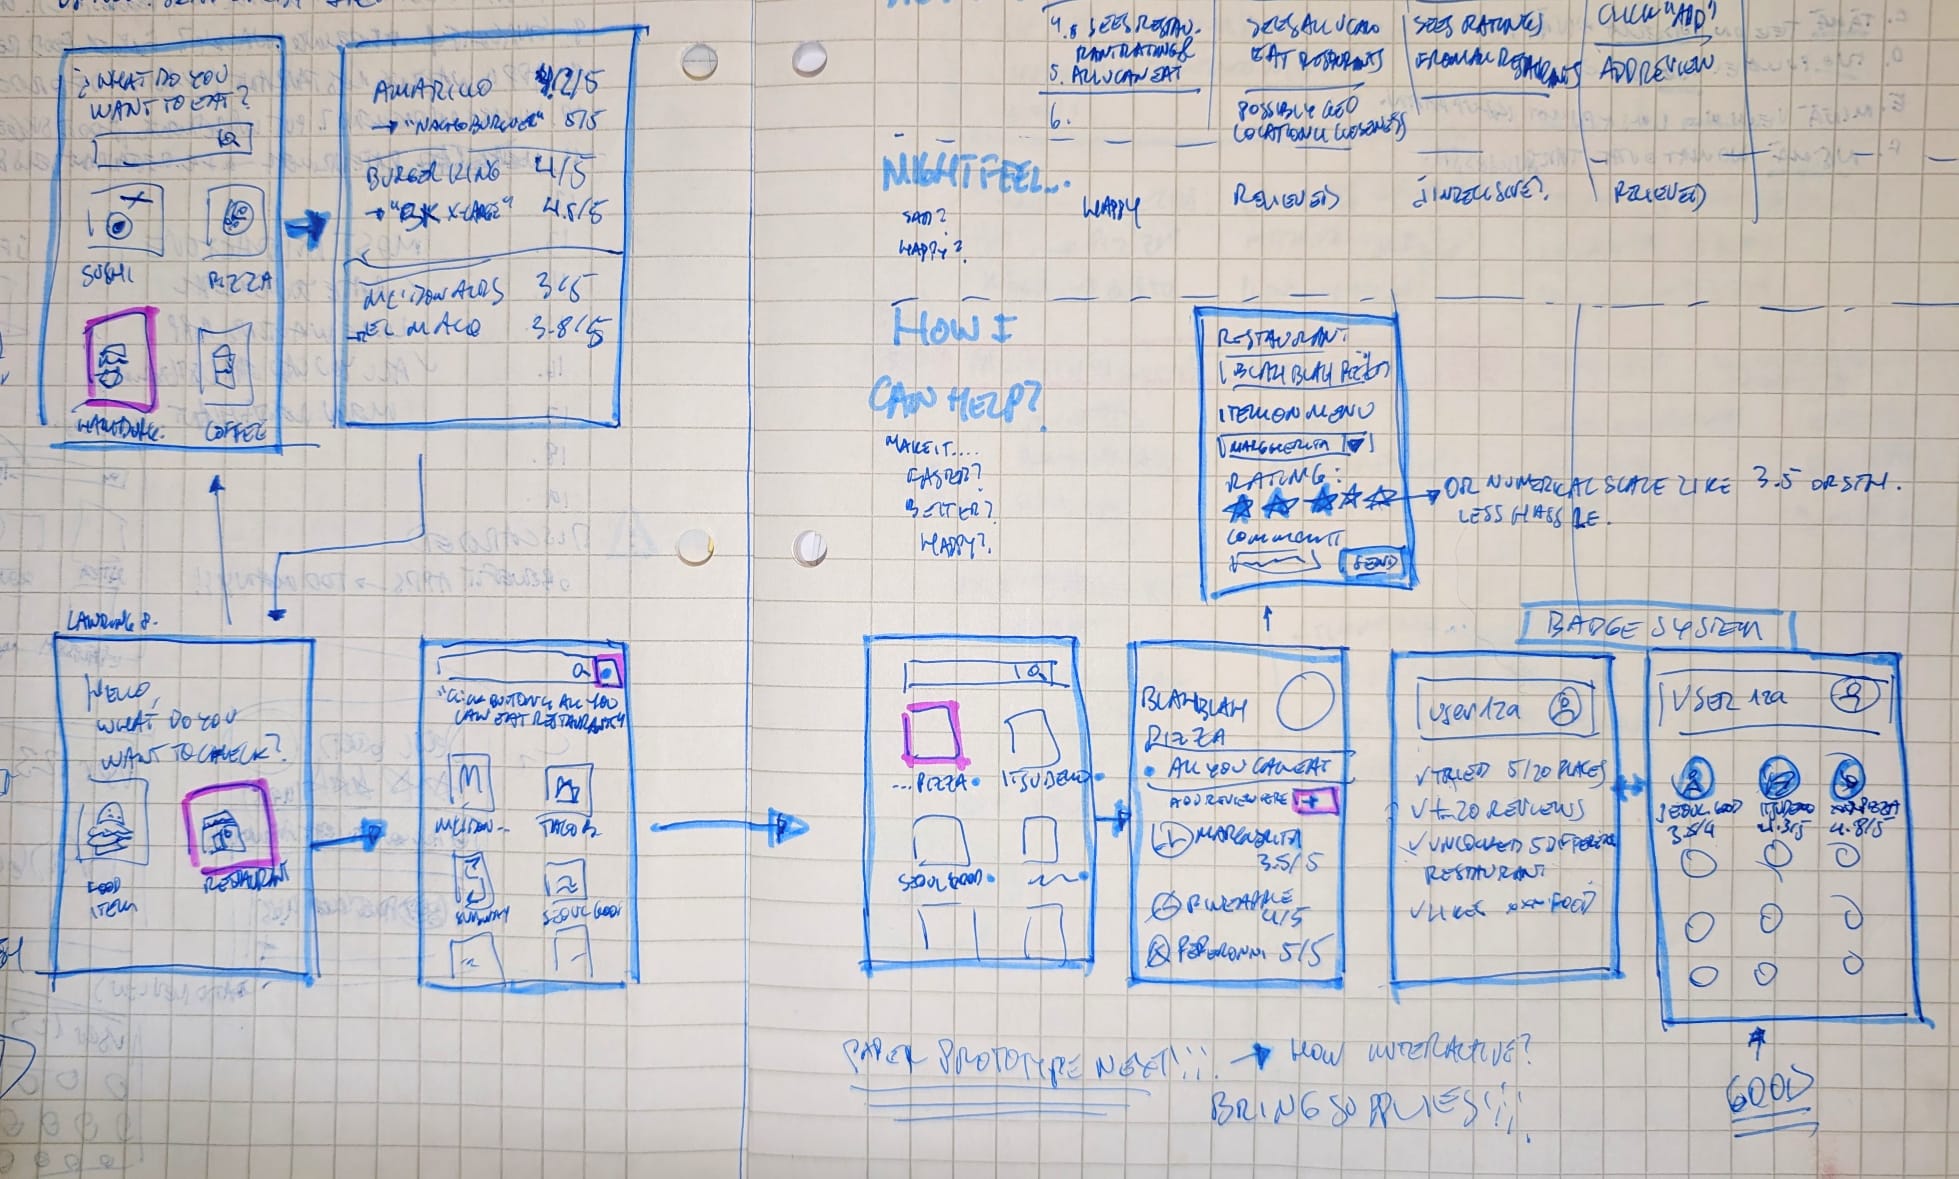 ¿WHAT DO YOU
WANT TO EAT?
SUSHI
PIZZA
COFFEE
AMARILLO 4.2/5
→ "NACHOBURGER" 5/5
BURGER KING 4/5
→ "BK X-LARGE" 4.5/5
MCDONALDS 3/5
EL MACO 3.8/5
4. SEES RESTAU-
RANT RATINGS
5. ALLUCANEAT
6.
SEES ALL U CAN
EAT RESTAURANTS
POSSIBLY GEO
LOCATION (CLOSENESS)
SEES RATINGS
FROM ALL RESTAURANTS
CLICK "ADD"
ADD REVIEW
MIGHT FEEL...
SAD?
HAPPY?
HAPPY
RELIEVED
RELIEVED
HOW I
CAN HELP?
MAKE IT....
EASIER?
BETTER?
HAPPY?
RESTAURANT
BLAH BLAH PIZZA
ITEM ON MENU
MARGHERITA
RATING:
→ OR NUMERICAL SCALE LIKE 3.5 OR STH.
LESS HASSLE.
COMMENT
SEND
LANDING P.
HELLO,
WHAT DO YOU
WANT TO CHECK?
FOOD
ITEM
RESTAURANT
"CLICK BUTTON 4 ALL YOU
CAN EAT RESTAURANTS"
M
MCDON...
TACO B.
SUBWAY
SEOUL GOOD
...PIZZA
ITSUDEMO
SEOUL GOOD
BLAH BLAH
PIZZA
ALL YOU CAN EAT
ADD REVIEW HERE +
MARGHERITA
3.5/5
PINEAPPLE
4/5
PEPERONNI 5/5
BADGE SYSTEM
user12a
✓ TRIED 5/20 PLACES
✓ +20 REVIEWS
✓ UNLOCKED 5 DIFFERENT
RESTAURANT
✓ LIKES FOOD
USER 12a
SEOUL GOOD
ITSUDEMO
4.3/5
PIZZA
4.8/5
PAPER PROTOTYPE NEXT!!! → HOW INTERACTIVE?
BRING SUPPLIES!!!
GOOD